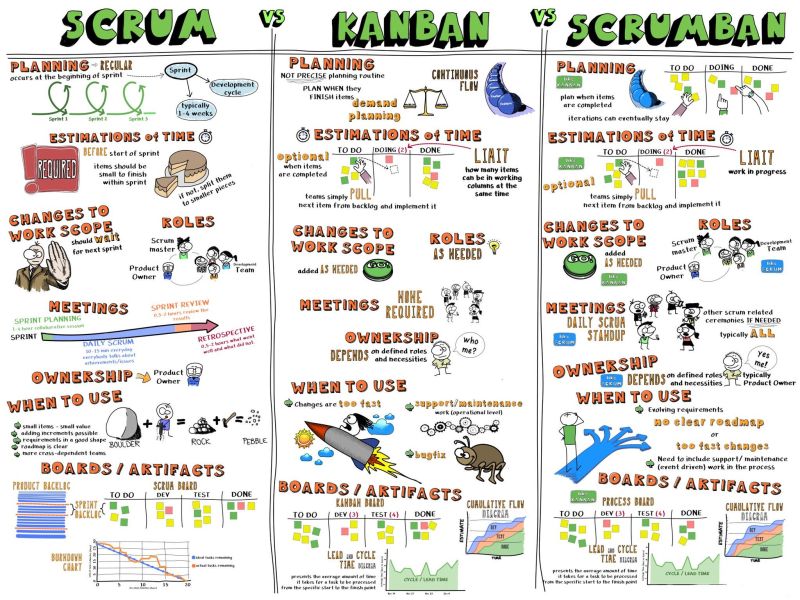 SCRUM
VS
KANBAN
VS
SCRUMBAN
PLANNING → REGULAR
occurs at the beginning of sprint
Sprint
Development
cycle
typically
1-4 weeks
Sprint 1
Sprint 2
Sprint 3
ESTIMATIONS of TIME
REQUIRED
BEFORE start of sprint
items should be
small to finish
within sprint
if not, split them
to smaller pieces
CHANGES TO
WORK SCOPE
should wait
for next sprint
ROLES
Scrum
master
Product
Owner
Development
Team
MEETINGS
SPRINT PLANNING
SPRINT REVIEW
SPRINT
DAILY SCRUM
10-15 min everyday
everybody talks about
achievements/issues
RETROSPECTIVE
0,5-2 hours what went
well and what did not
OWNERSHIP
Product
Owner
WHEN TO USE
small items - small value
adding increments possible
requirements in a good shape
roadmap is clear
more cross-dependent teams
BOULDER
ROCK
PEBBLE
BOARDS / ARTIFACTS
PRODUCT BACKLOG
SPRINT
BACKLOG
SCRUM BOARD
TO DO
DEV
TEST
DONE
BURNDOWN
CHART
0 5 10 15 20
PLANNING
NOT PRECISE planning routine
PLAN WHEN they
FINISH items
demand
planning
CONTINUOUS
FLOW
ESTIMATIONS of TIME
optional
when items
are completed
TO DO
DOING (2)
DONE
LIMIT
how many items
can be in working
columns at the
same time
teams simply PULL
next item from backlog and implement it
CHANGES TO
WORK SCOPE
added AS NEEDED
ROLES
AS NEEDED
MEETINGS
NONE
REQUIRED
OWNERSHIP
DEPENDS on defined roles
and necessities
Who
me?
WHEN TO USE
Changes are too fast
support/maintenance
work (operational level)
bugfix
BOARDS / ARTIFACTS
KANBAN BOARD
TO DO
DEV (3)
TEST (4)
DONE
CUMULATIVE FLOW
DIAGRAM
ESTIMATE
DEV
TEST
DONE
TIME
LEAD AND CYCLE
TIME
DIAGRAM
presents the average amount of time
it takes for a task to be processed
from the specific start to the finish point
CYCLE / LEAD TIME
PLANNING
like
KANBAN
TO DO
DOING
DONE
plan when items
are completed
iterations can eventually stay
ESTIMATIONS of TIME
like
KANBAN
optional
TO DO
DOING (2)
DONE
LIMIT
work in progress
teams simply PULL
next item from backlog and implement it
CHANGES TO
WORK SCOPE
added
AS NEEDED
like
KANBAN
ROLES
Scrum
master
Product
Owner
Development
Team
like
SCRUM
MEETINGS
DAILY SCRUM
STANDUP
like
SCRUM
other scrum related
ceremonies IF NEEDED
typically ALL
OWNERSHIP
like
SCRUM
DEPENDS on defined roles
and necessities
typically
Product Owner
Yes
me!
WHEN TO USE
Evolving requirements
no clear roadmap
or
too fast changes
Need to include support/ maintenance
(event driven) work in the process
BOARDS / ARTIFACTS
like
KANBAN
PROCESS BOARD
TO DO
DEV (3)
TEST (4)
DONE
CUMULATIVE FLOW
DIAGRAM
ESTIMATE
DEV
TEST
DONE
TIME
LEAD AND CYCLE
TIME
DIAGRAM
presents the average amount of time
it takes for a task to be processed
from the specific start to the finish point
CYCLE / LEAD TIME